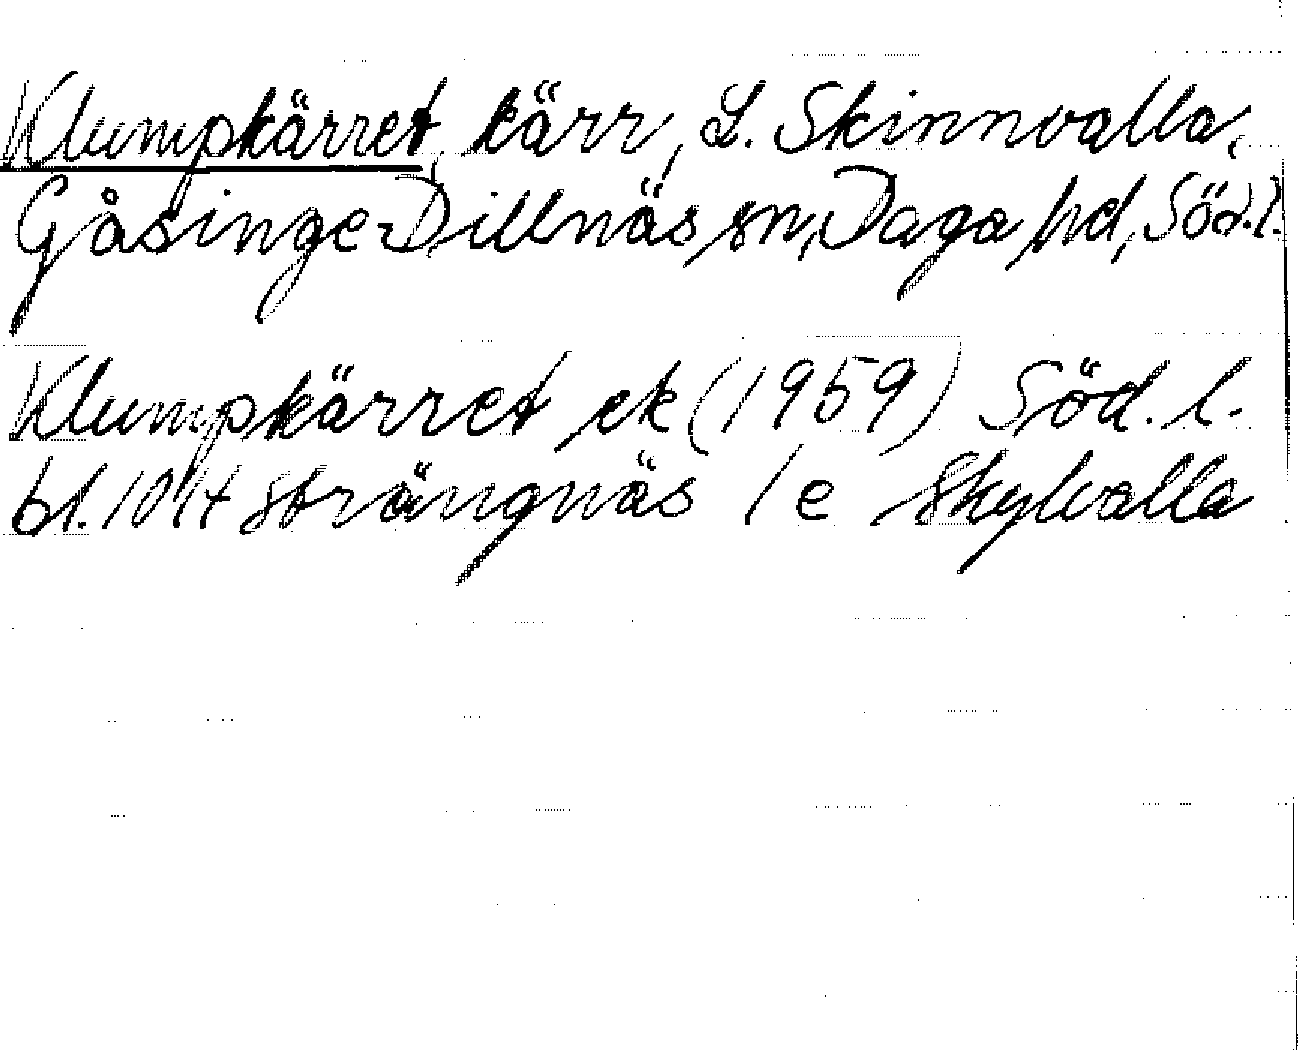 Klumpkärret, kärr, L. Skinnvalla,
Gåsinge-Dillnäs sn, Daga hd, Söd.l.
Klumpkärret ek (1959) Söd. l.
bl. 10H Strängnäs 1 e Skylvalla